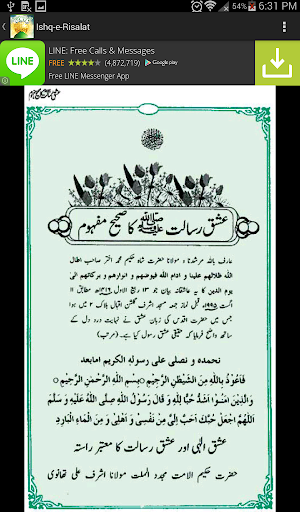 6:31 PM
Ishq-e-Risalat
LINE: Free Calls & Messages
FREE ★★★★☆ (4,872,719) Google play
Free LINE Messenger App
LINE
عشق رسالت ﷺ کا صحیح مفہوم
عارف باللہ مرشدنا و مولانا حضرت شاہ حکیم محمد اختر صاحب اطال
اللہ ظلالھم علینا و ادام اللہ فیوضھم و انوارھم و برکاتھم الی
یوم الدین کا یہ عاشقانہ بیان جو ۱۳ ربیع الاول ۱۴۱۶ھ مطابق ۱۱
اگست ۱۹۹۵ء قبل نماز جمعہ مسجد اشرف گلشن اقبال بلاک ۲ میں ہوا
جس میں حضرت اقدس کی زبان عشق نے نہایت درد دل کے
ساتھ واضح فرمایا کہ حقیقی عشق رسول کیا ہے۔ (مرتب)
نحمدہ و نصلی علی رسولہ الکریم امابعد
فَاَعُوْذُ بِاللّٰهِ مِنَ الشَّيْطٰنِ الرَّجِيْمِ بِسْمِ اللّٰهِ الرَّحْمٰنِ الرَّحِيْمِ
وَالَّذِيْنَ اٰمَنُوْا اَشَدُّ حُبًّا لِّلّٰهِ وَ قَالَ رَسُوْلُ اللّٰهِ صَلَّى اللّٰهُ عَلَيْهِ وَ سَلَّمَ
اَللّٰهُمَّ اجْعَلْ حُبَّكَ اَحَبَّ اِلَيَّ مِنْ نَفْسِيْ وَ اَهْلِيْ وَ مِنَ الْمَاءِ الْبَارِدِ
عشق الٰہی اور عشق رسالت کا معتبر راستہ
حضرت حکیم الامت مجدد الملت مولانا اشرف علی تھانوی